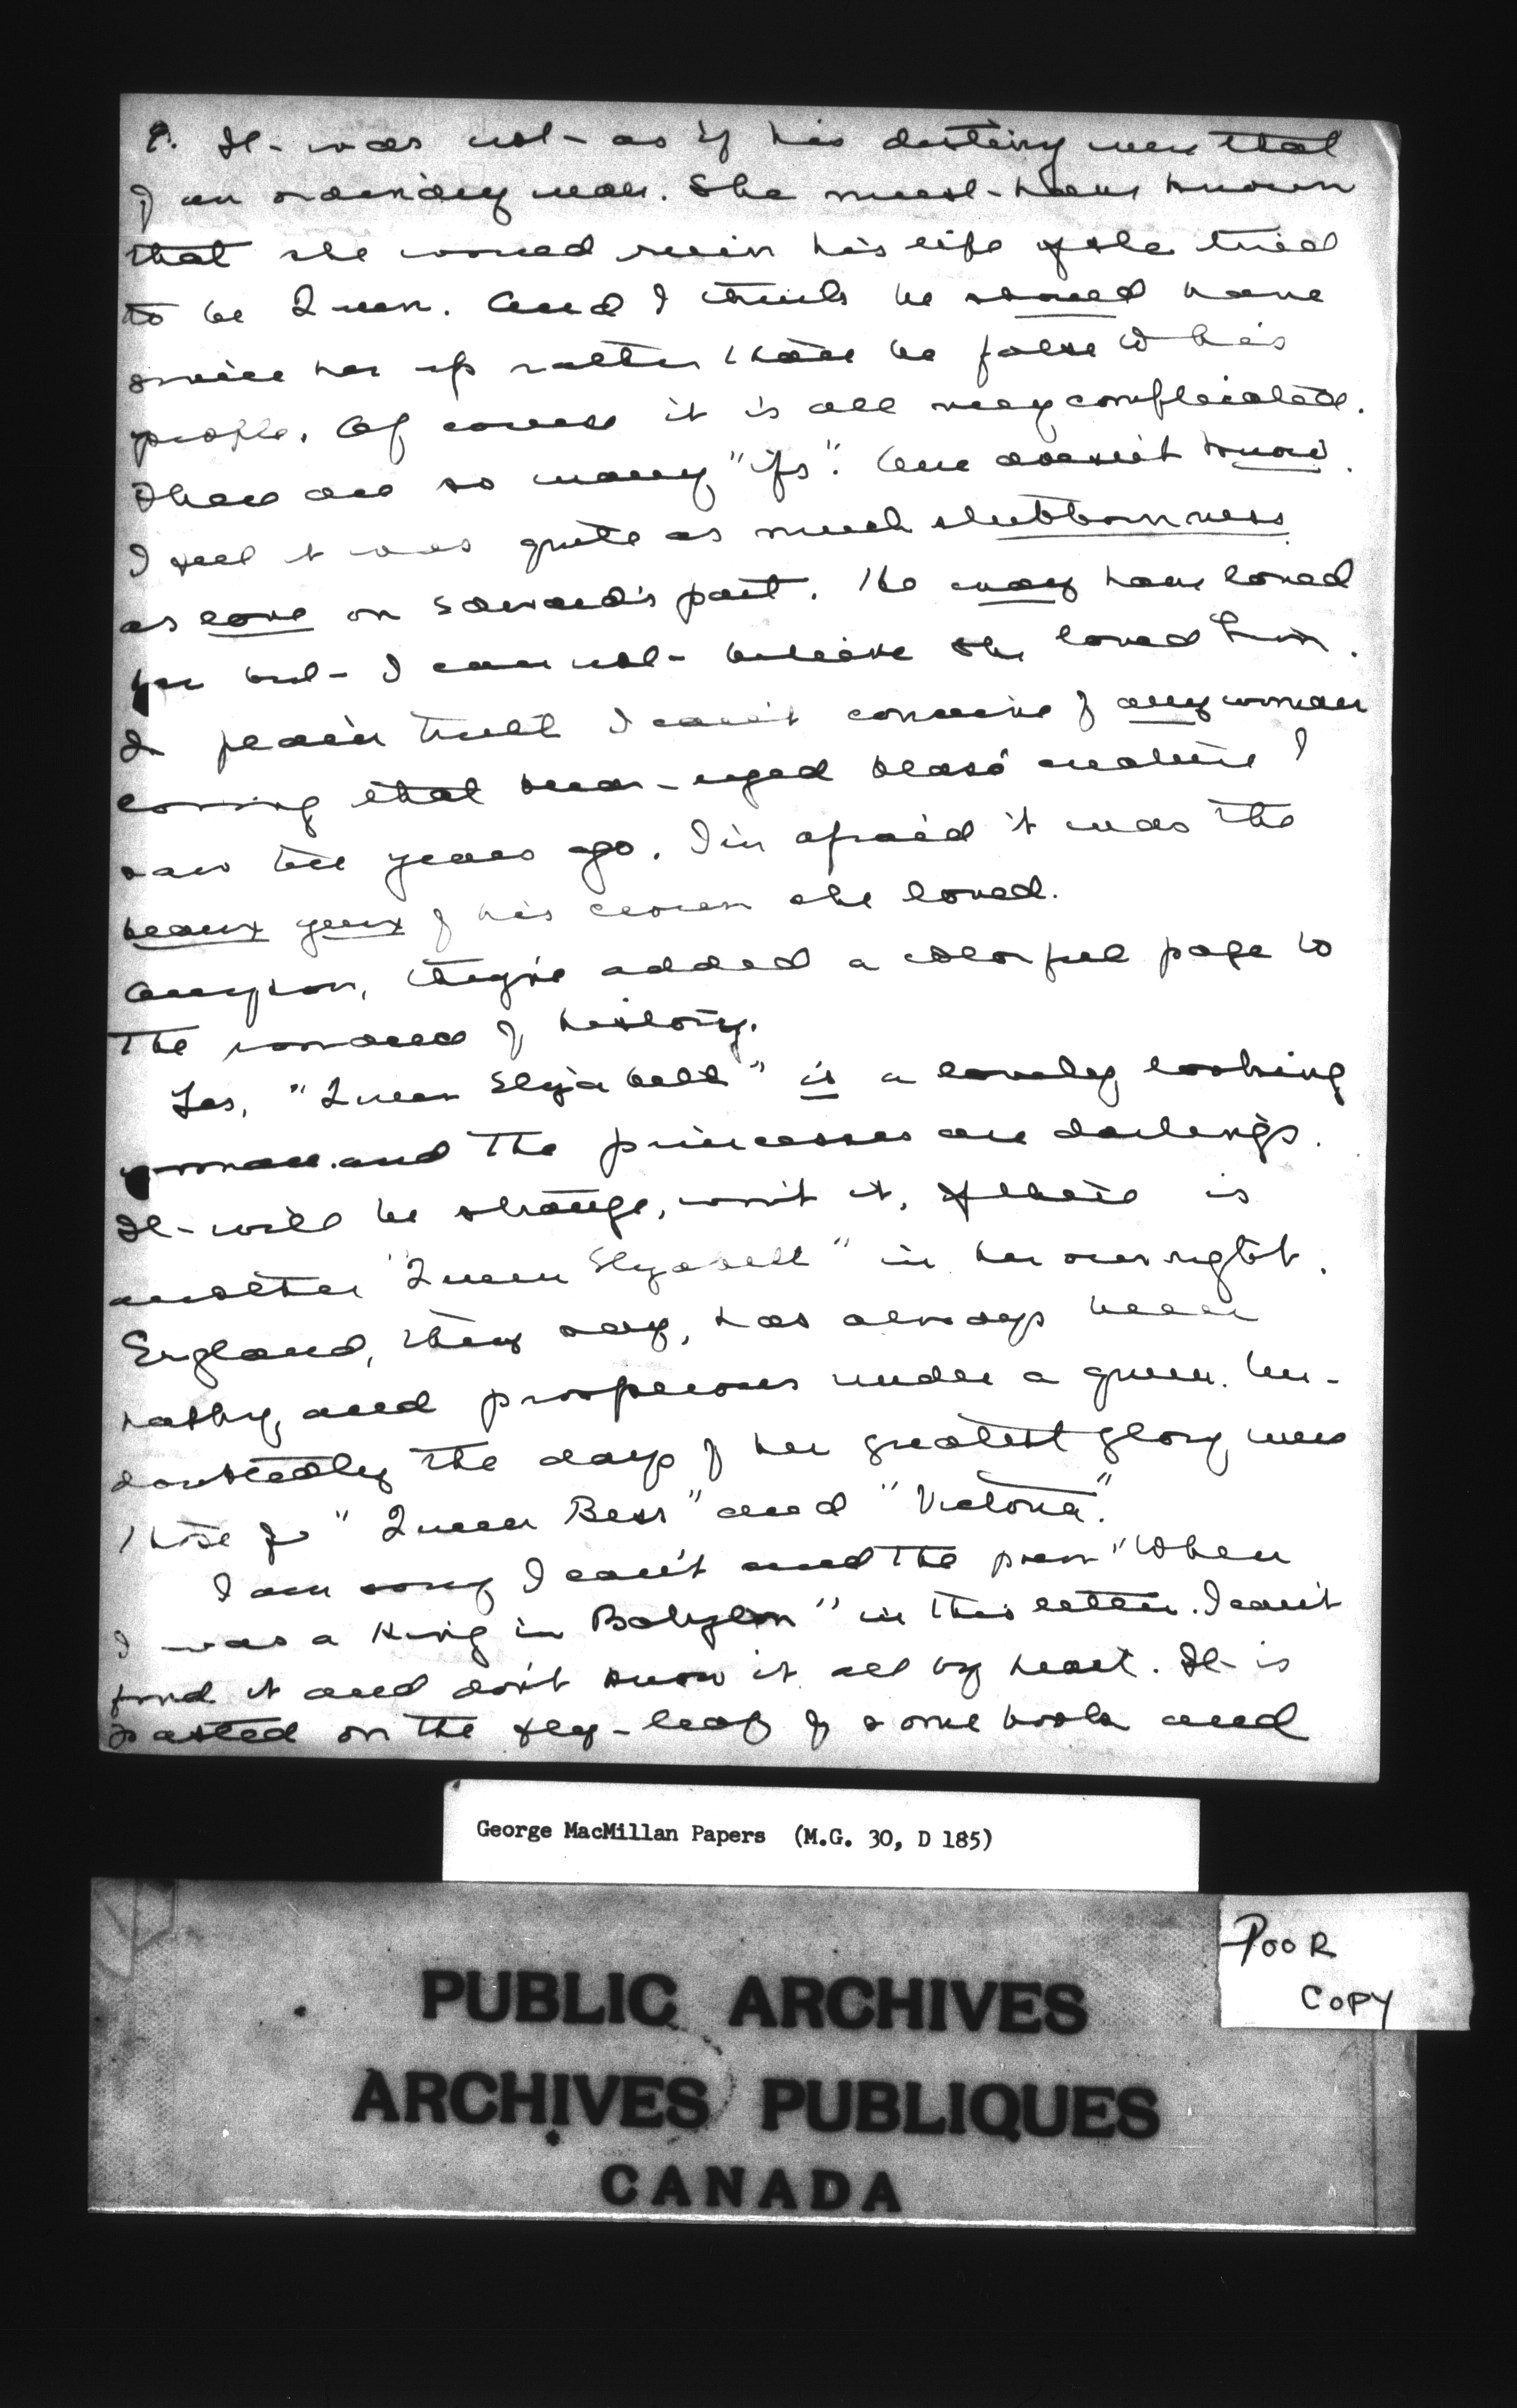 9. It was not as if his destiny were that
of an ordinary man. She must have known
that she would ruin his life if she tried
to be Queen. And I think he should have
given her up rather than be false to his
people. Of course it is all very complicated.
There are so many "ifs". One doesn't know.
I feel it was quite as much stubbornness
as love on Edward's part. He may have loved
her but I cannot believe she loved him.
In plain truth I can't conceive of any woman
loving that blear-eyed blasé creature I
saw ten years ago. I'm afraid it was the
beaux yeux of his crown she loved.
Anyhow, they've added a colorful page to
the romance of history.
Yes, "Queen Elizabeth" is a lovely looking
woman and the princesses are darlings.
It will be strange, won't it, if there is
another "Queen Elizabeth" in her own right.
England, they say, has always been
happy and prosperous under a queen. Un-
doubtedly the days of her greatest glory were
those of "Queen Bess" and "Victoria".
I am sorry I can't send the poem "When
I was a King in Babylon" in this letter. I can't
find it and don't know it all by heart. It is
pasted on the fly-leaf of some book and
George MacMillan Papers (M.G. 30, D 185)
POOR
COPY
PUBLIC ARCHIVES
ARCHIVES PUBLIQUES
CANADA